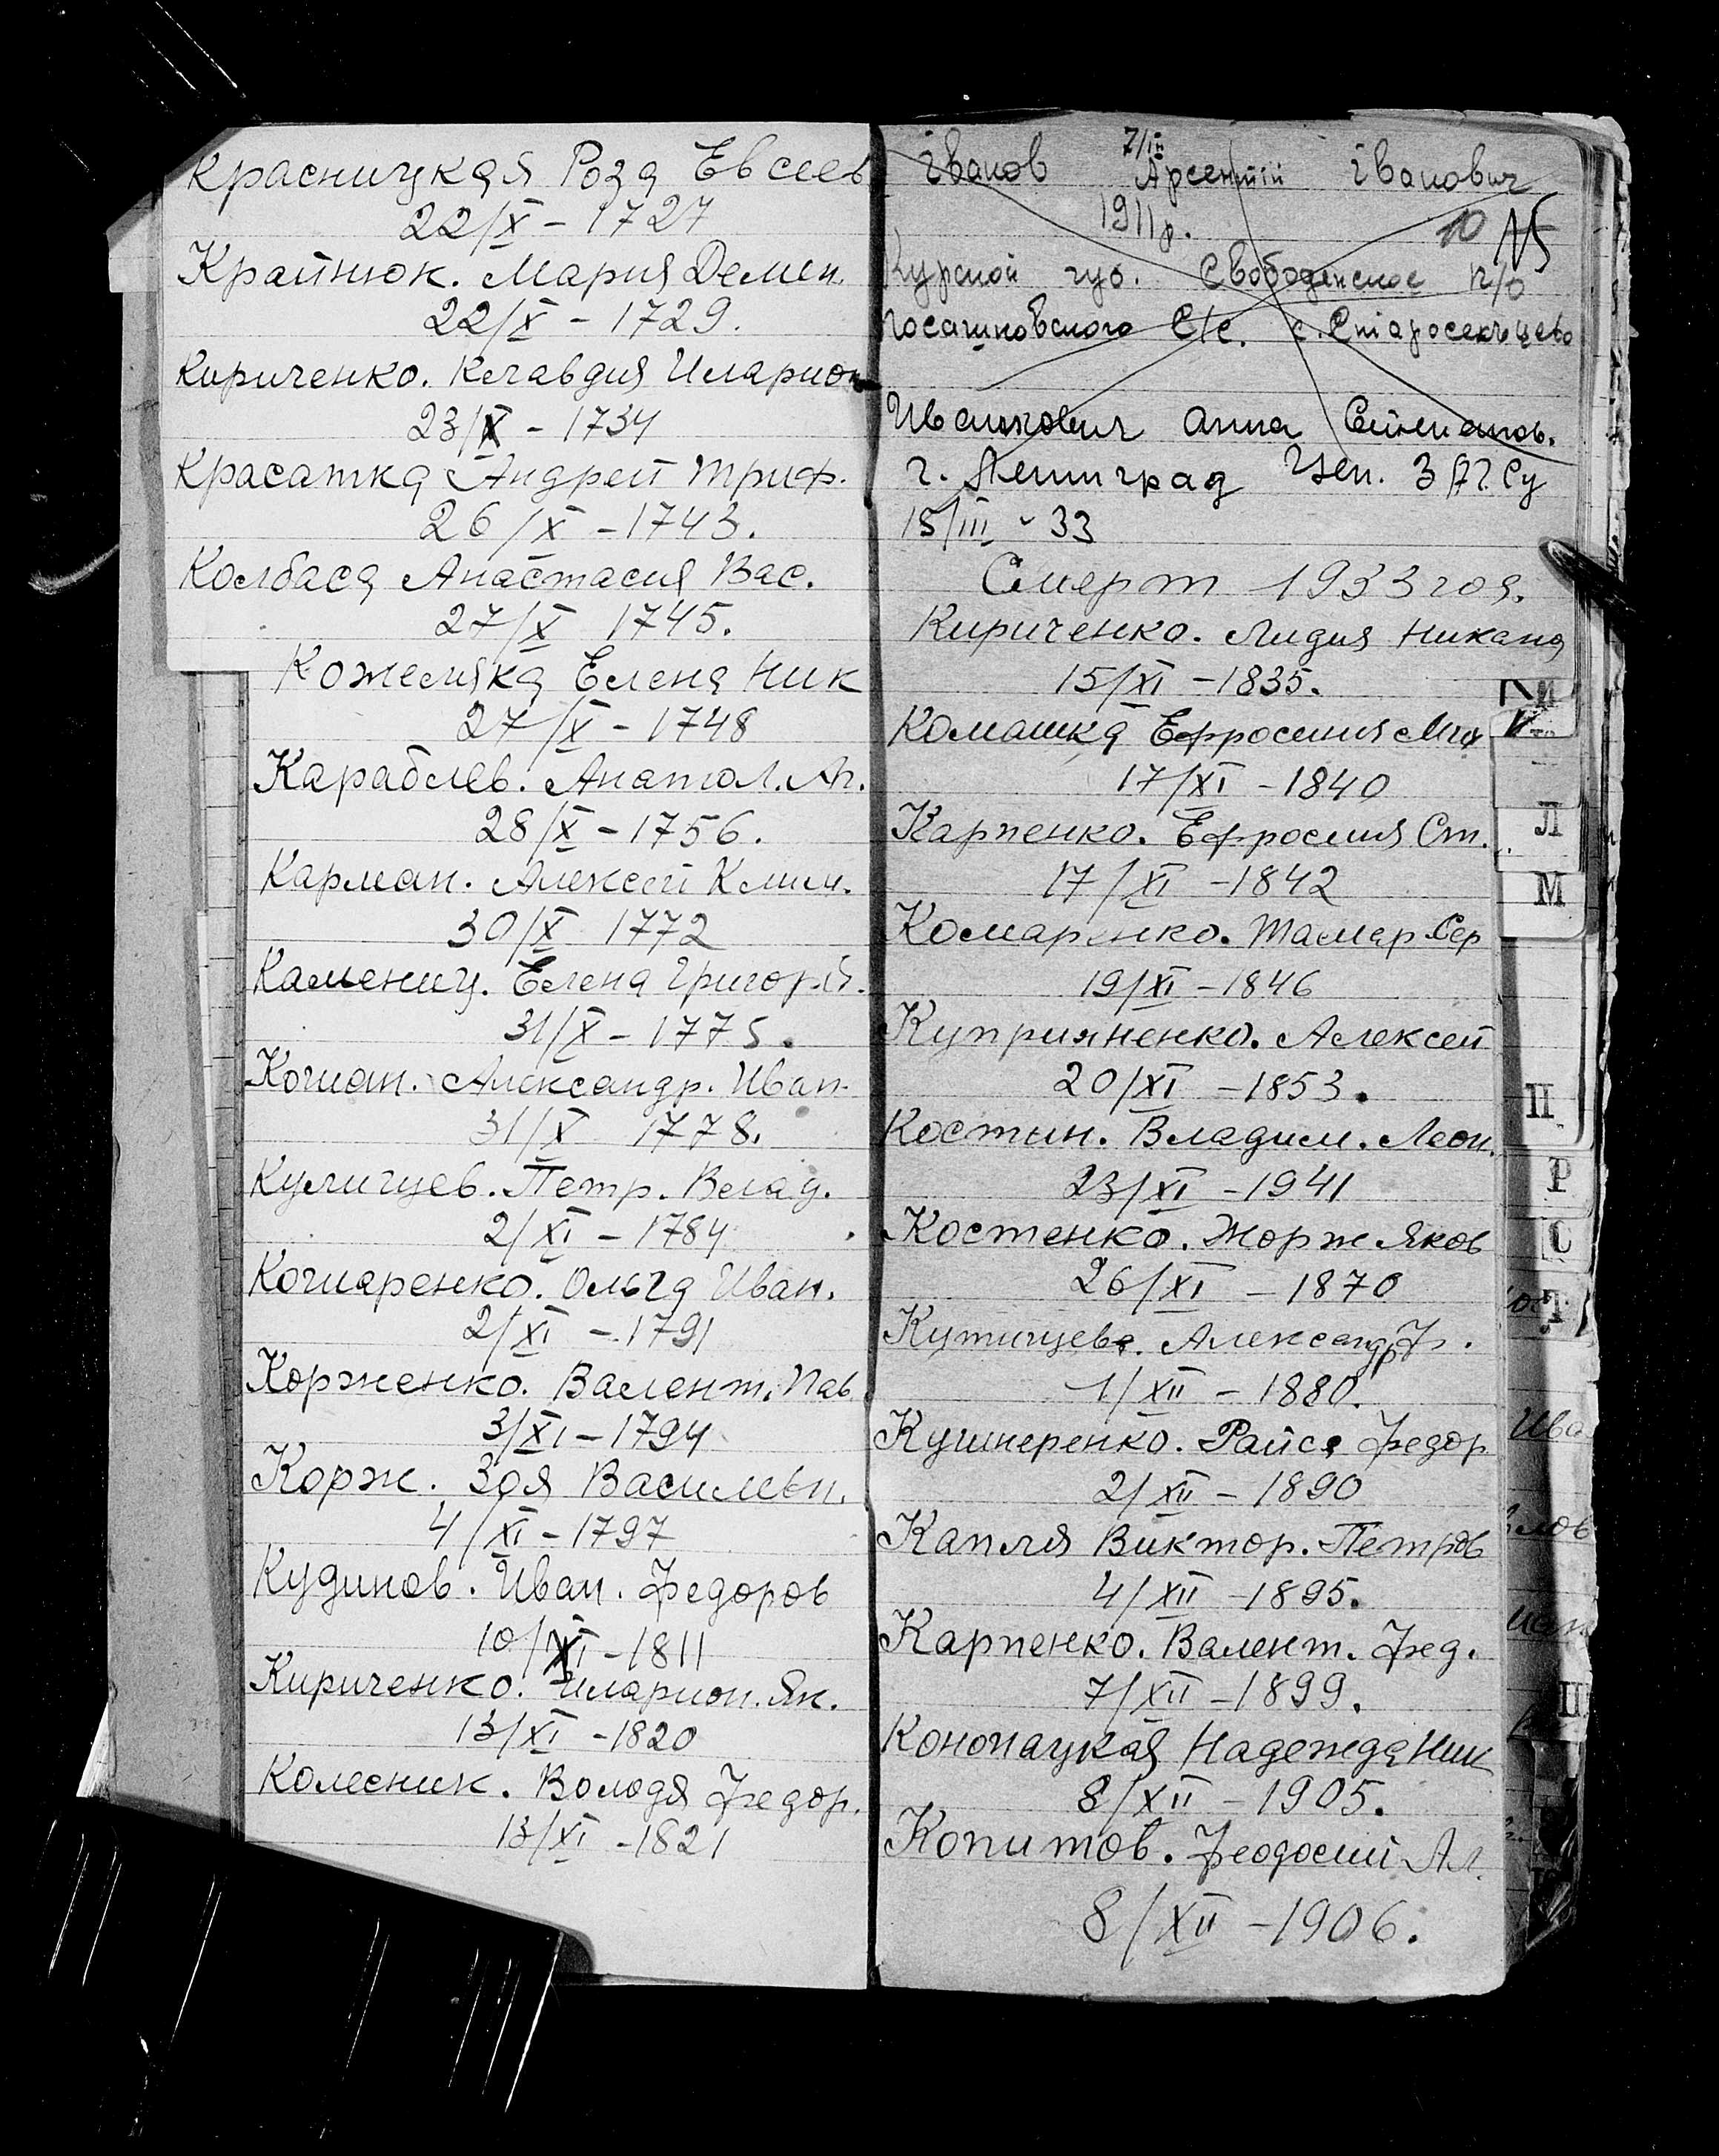 Красницкая Роза Евсеев
22/X - 1727
Крайнюк. Мария Демен.
22/X - 1729.
Кириченко. Клавдия Иларион
23/X - 1734
Красатка Андрей Триф.
26/X - 1743.
Колбаса Анастасия Вас.
27/X 1745.
Кожемяка Елена Ник
27/X - 1748
Караблев. Анатол. Ан.
28/X - 1756.
Карман. Алексей Клим.
30/X 1772
Камениц. Елена Григор.
31/X - 1775.
Коман. Александр. Иван.
31/X 1778.
Куличцев. Петр. Влад.
2/XI - 1784
Комаренко. Ольга Иван.
2/XI - 1791
Корженко. Валент. Пав.
3/XI - 1794
Корж. Зоя Васильвн.
4/XI - 1797
Кудинов. Иван. Федоров
10/XI - 1811
Кириченко. Иларион. Як.
13/XI - 1820
Колесник. Володя Федор.
13/XI - 1821
7/III
Іванов Арсентій Іванович
1911р.
10
Курской губ. Свободенское п/о
С/с. с.
Ивашкович Анна Степанов.
г. Ленинград Цен. ЗАГСу
15/III - 33
Смерт 1933 год.
Кириченко. Лидия Никана
15/XI - 1835.
Комашка Ефросиния Мих
17/XI - 1840
Карпенко. Ефросиня Ст.
17/XI - 1842
Комаренко. Тамар Сер
19/XI - 1846
Куприяненко. Алексей
20/XI - 1853.
Костын. Владим. Леон.
23/XI - 1941
Костенко. Жорж Яков
26/XI - 1870
Александр
1/XII - 1880.
Кушнеренко. Раиса Федор
2/XII - 1890
Капля Виктор. Петров
4/XII - 1895.
Карпенко. Валент. Фед.
7/XII - 1899.
Конопацкая Надежда Ник
8/XII - 1905.
Копитов. Феодосий Ал.
8/XII - 1906.
Л
М
П
Р
С
Т